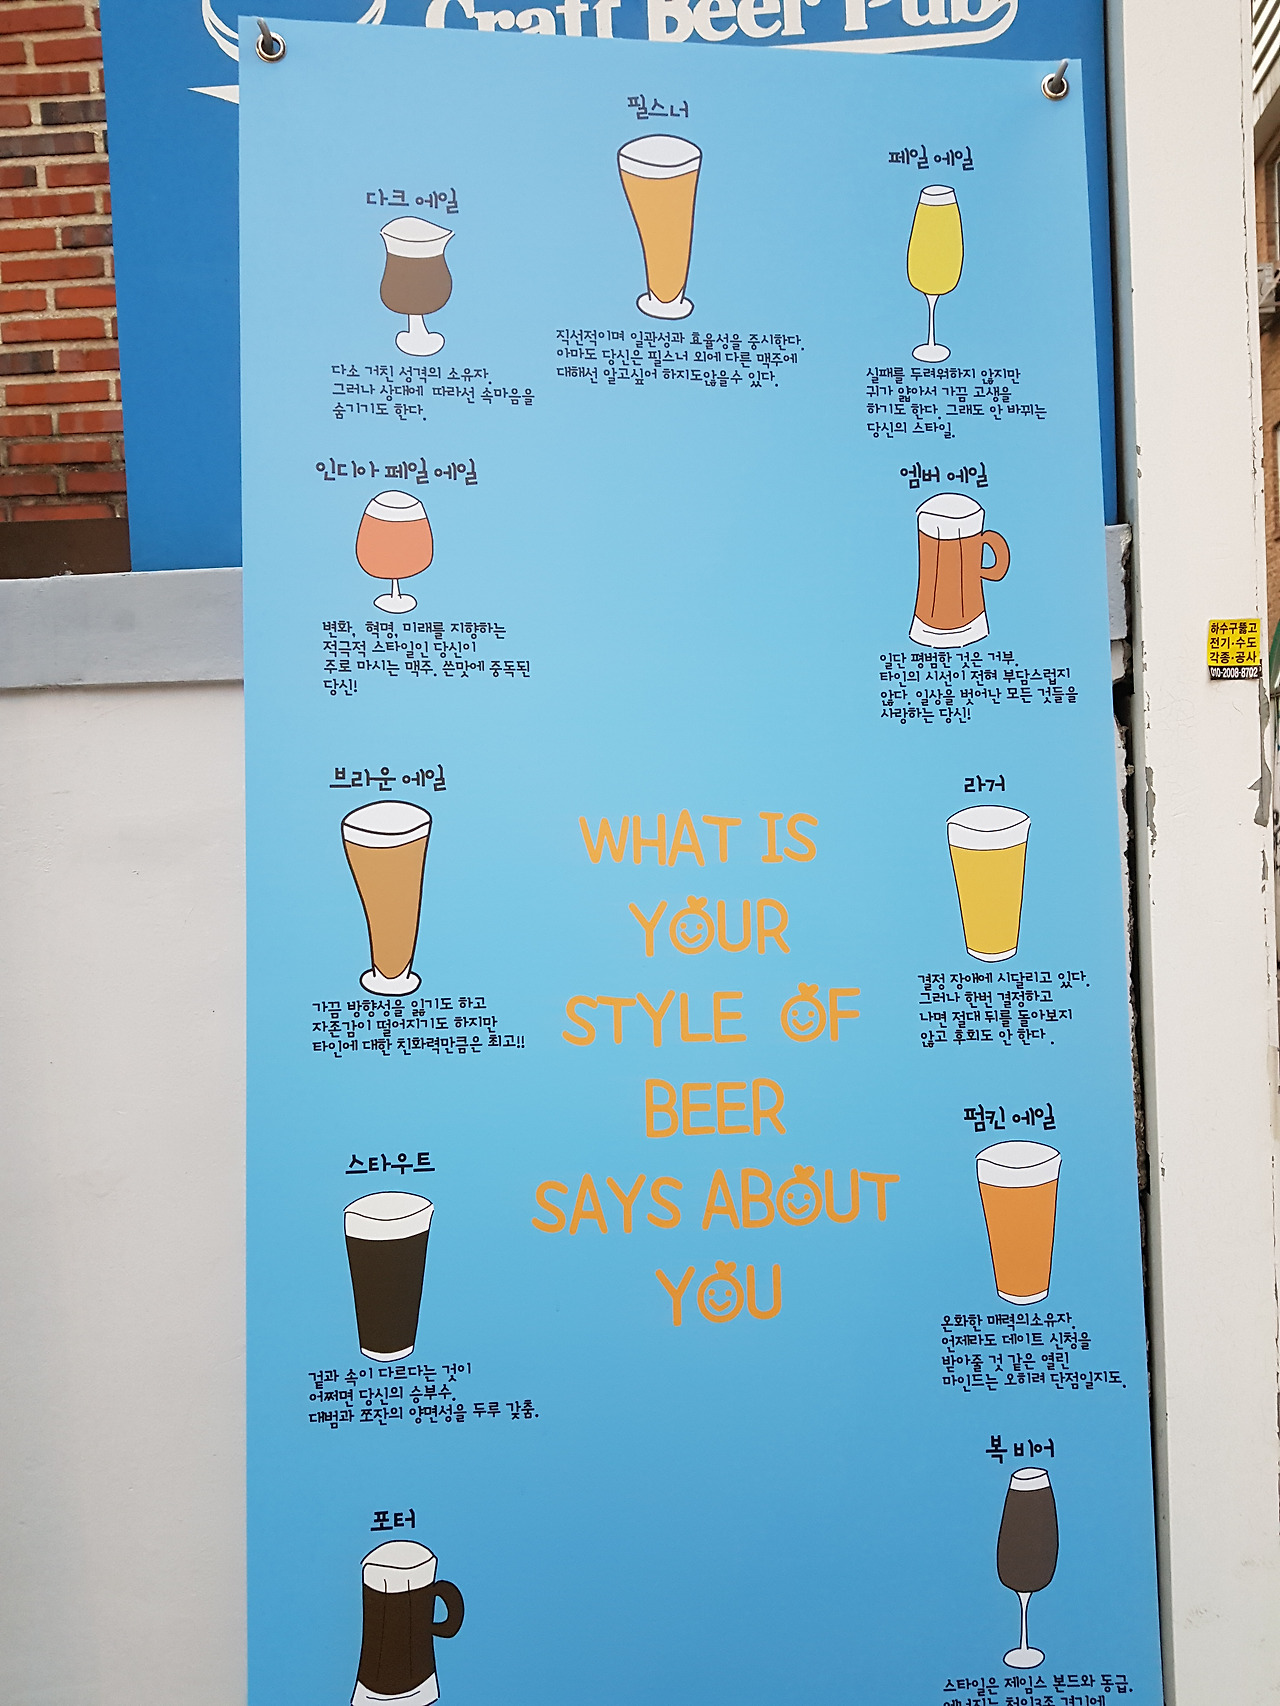 Craft Beer Pub
필스너
직선적이며 일관성과 효율성을 중시한다.
아마도 당신은 필스너 외에 다른 맥주에
대해선 알고싶어 하지도않을수 있다.
다크 에일
다소 거친 성격의 소유자.
그러나 상대에 따라선 속마음을
숨기기도 한다.
페일 에일
실패를 두려워하지 않지만
귀가 얇아서 가끔 고생을
하기도 한다. 그래도 안 바뀌는
당신의 스타일.
인디아 페일 에일
변화, 혁명, 미래를 지향하는
적극적 스타일인 당신이
주로 마시는 맥주. 쓴맛에 중독된
당신!
엠버 에일
일단 평범한 것은 거부.
타인의 시선이 전혀 부담스럽지
않다. 일상을 벗어난 모든 것들을
사랑하는 당신!
브라운 에일
가끔 방향성을 잃기도 하고
자존감이 떨어지기도 하지만
타인에 대한 친화력만큼은 최고!!
라거
결정 장애에 시달리고 있다.
그러나 한번 결정하고
나면 절대 뒤를 돌아보지
않고 후회도 안 한다.
WHAT IS
YOUR
STYLE OF
BEER
SAYS ABOUT
YOU
스타우트
겉과 속이 다르다는 것이
어쩌면 당신의 승부수.
대범과 쪼잔의 양면성을 두루 갖춤.
펌킨 에일
온화한 매력의소유자.
언제라도 데이트 신청을
받아줄 것 같은 열린
마인드는 오히려 단점일지도.
포터
복 비어
스타일은 제임스 본드와 동급.
하수구뚫고
전기·수도
각종·공사
010-2008-8702